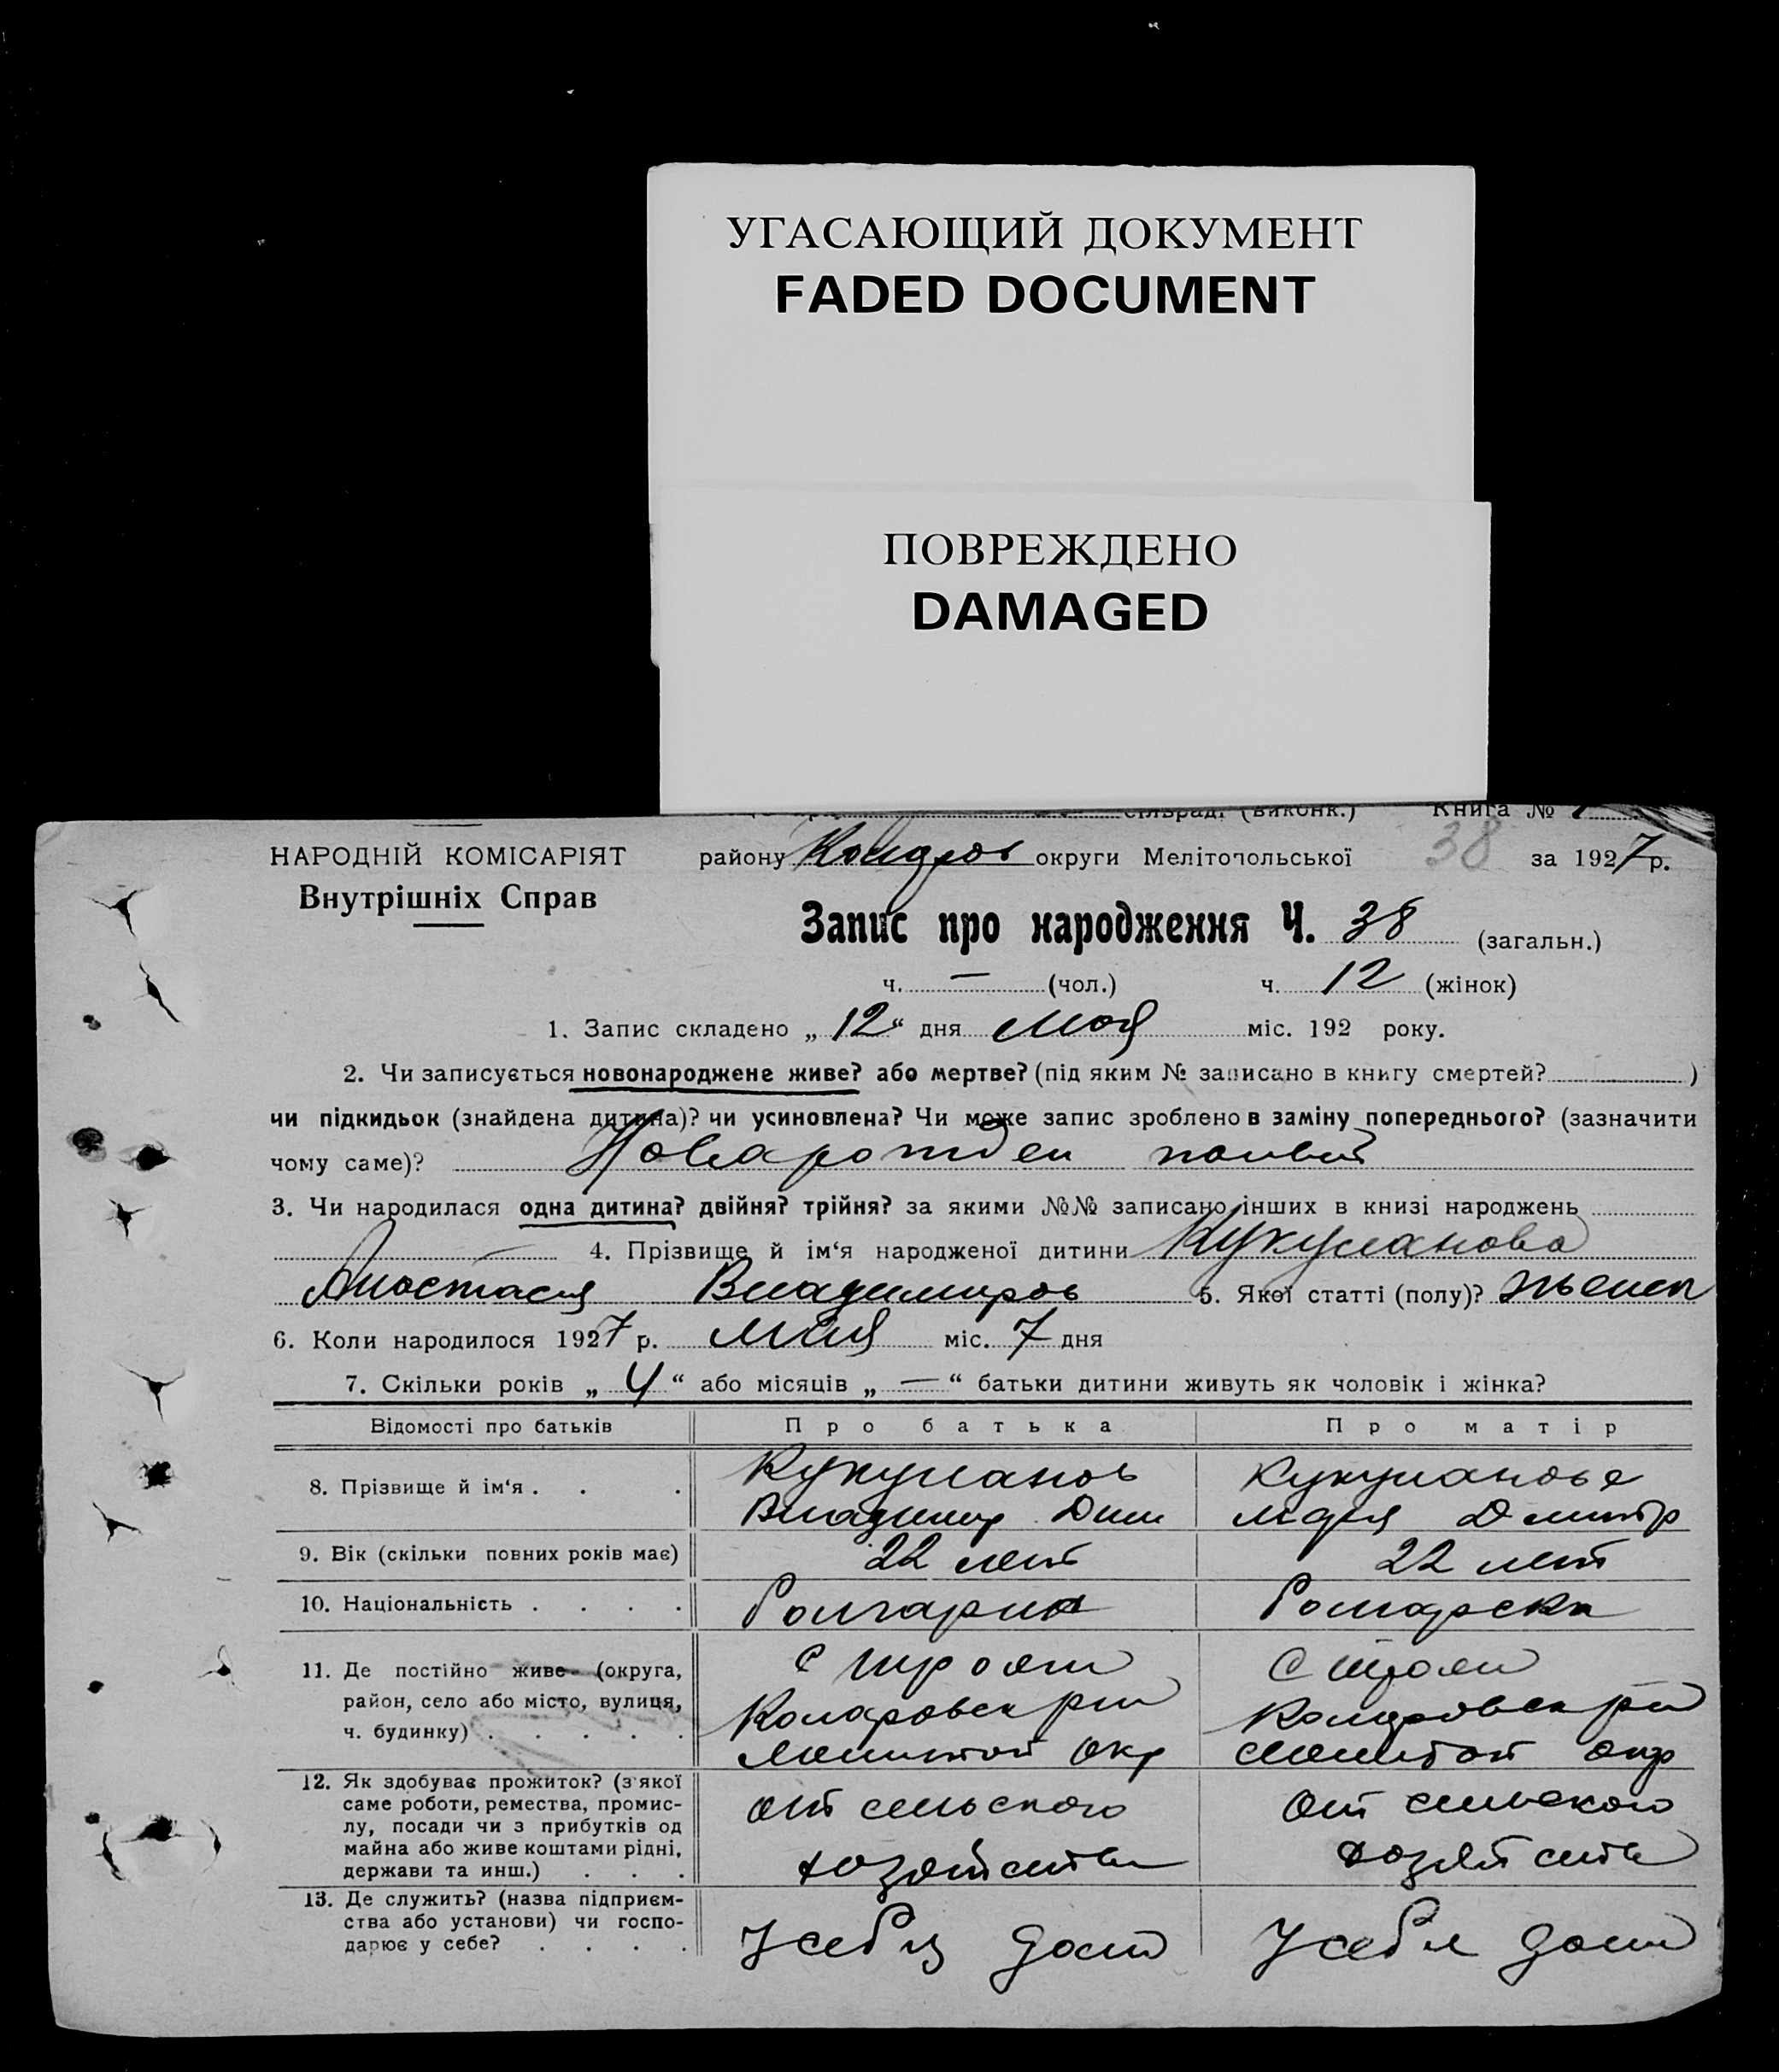 УГАСАЮЩИЙ ДОКУМЕНТ
FADED DOCUMENT
ПОВРЕЖДЕНО
DAMAGED
сільради (виконк.) Книга №
НАРОДНІЙ КОМІСАРІЯТ
Внутрішніх Справ
району Коларов округи Мелітопольської 38 за 1927 р.
Запис про народження Ч. 38 (загальн.)
ч. — (чол.) ч. 12 (жінок)
1. Запис складено „12“ дня Мая міс. 192 року.
2. Чи записується новонароджене живе? або мертве? (під яким № записано в книгу смертей? )
чи підкидьок (знайдена дитина)? чи усиновлена? Чи може запис зроблено в заміну попереднього? (зазначити
чому саме)? Новарожден
3. Чи народилася одна дитина? двійня? трійня? за якими №№ записано інших в книзі народжень
— 4. Прізвище й ім‘я народженої дитини Кукуланова
Анастасия Владимиров 5. Якої статті (полу)? женск
6. Коли народилося 1927 р. Мая міс. 7 дня
7. Скільки років „4“ або місяців „—“ батьки дитини живуть як чоловік і жінка?
Відомості про батьків Про батька Про матір
8. Прізвище й ім‘я . . . Кукуланов
Владимир Дми Дмитр
9. Вік (скільки повних років має) 22 лет 22 лет
10. Національність . . . . Болгарин Болгарска
11. Де постійно живе (округа,
район, село або місто, вулиця,
ч. будинку) . . . . .
С Строг
Коларовск рн
Мелитоп окр
Коларовск рн
Мелитоп окр
12. Як здобуває прожиток? (з якої
саме роботи, ремества, промис-
лу, посади чи з прибутків од
майна або живе коштами рідні,
держави та инш.) . . .
от сельского
хозяйства
от сельского
хозяйства
13. Де служить? (назва підприєм-
ства або установи) чи госпо-
дарює у себе? . . . .
У себя дома
У себя дома